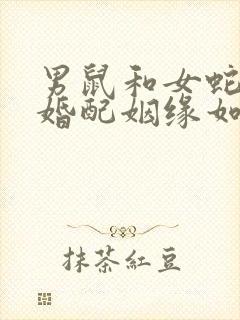 男鼠和女蛇
婚配姻缘如
抹茶紅豆